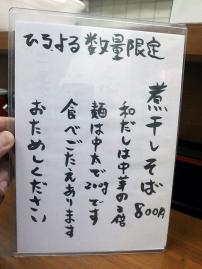 ひる、よる数量限定
煮干しそば
800円
和だしは中華の2倍
麺は中太で200gです
食べごたえあります
おためしください